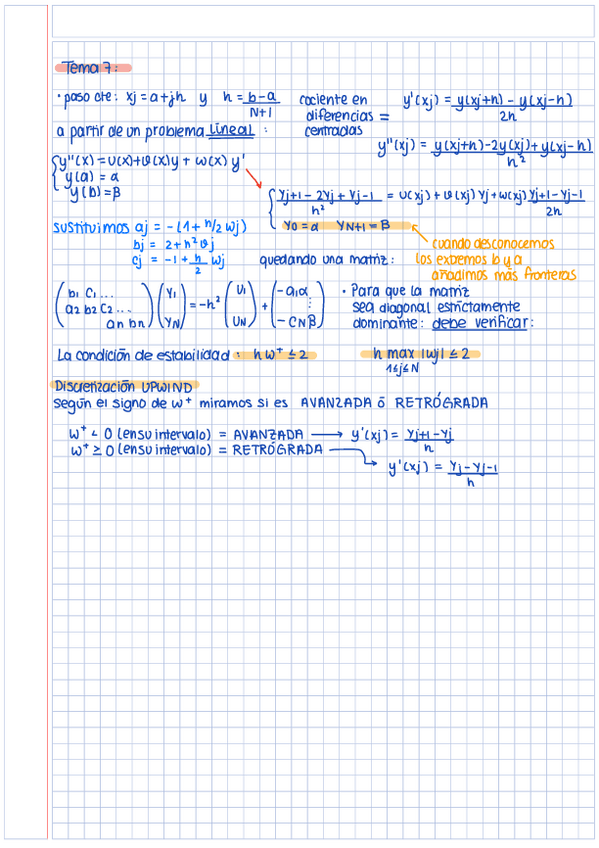 Tema 7:
· paso cte: xj = a+jh y h = b-a / N+1 cociente en diferencias centradas = y'(xj) = y(xj+h) - y(xj-h) / 2h
a partir de un problema lineal : y''(xj) = y(xj+h)-2y(xj)+y(xj-h) / h²
{ y''(x) = u(x)+v(x)y + w(x) y'
y(a) = α
y(b) = β
{ Yj+1 - 2Yj + Yj-1 / h² = u(xj) + v(xj) Yj + w(xj) Yj+1 - Yj-1 / 2h
Y0 = α YN+1 = β
sustituimos aj = -(1 + h/2 wj)
bj = 2+h²vj
cj = -1 + h/2 wj
cuando desconocemos
los extremos b y a
añadimos más fronteras
quedando una matriz:
( b1 c1 ... a2 b2 c2 ... an bn ) ( Y1 YN ) = -h² ( U1 ⋮ UN ) + ( -a1α ⋮ -CNβ )
· Para que la matriz
sea diagonal estrictamente
dominante: debe verificar:
La condición de estabilidad : h w⁺ ≤ 2 h max |wj| ≤ 2
1≤j≤N
Discretización UPWIND
según el signo de w⁺ miramos si es AVANZADA ó RETRÓGRADA
w⁺ < 0 (en su intervalo) = AVANZADA → y'(xj) = Yj+1 - Yj / h
w⁺ ≥ 0 (en su intervalo) = RETRÓGRADA → y'(xj) = Yj - Yj-1 / h